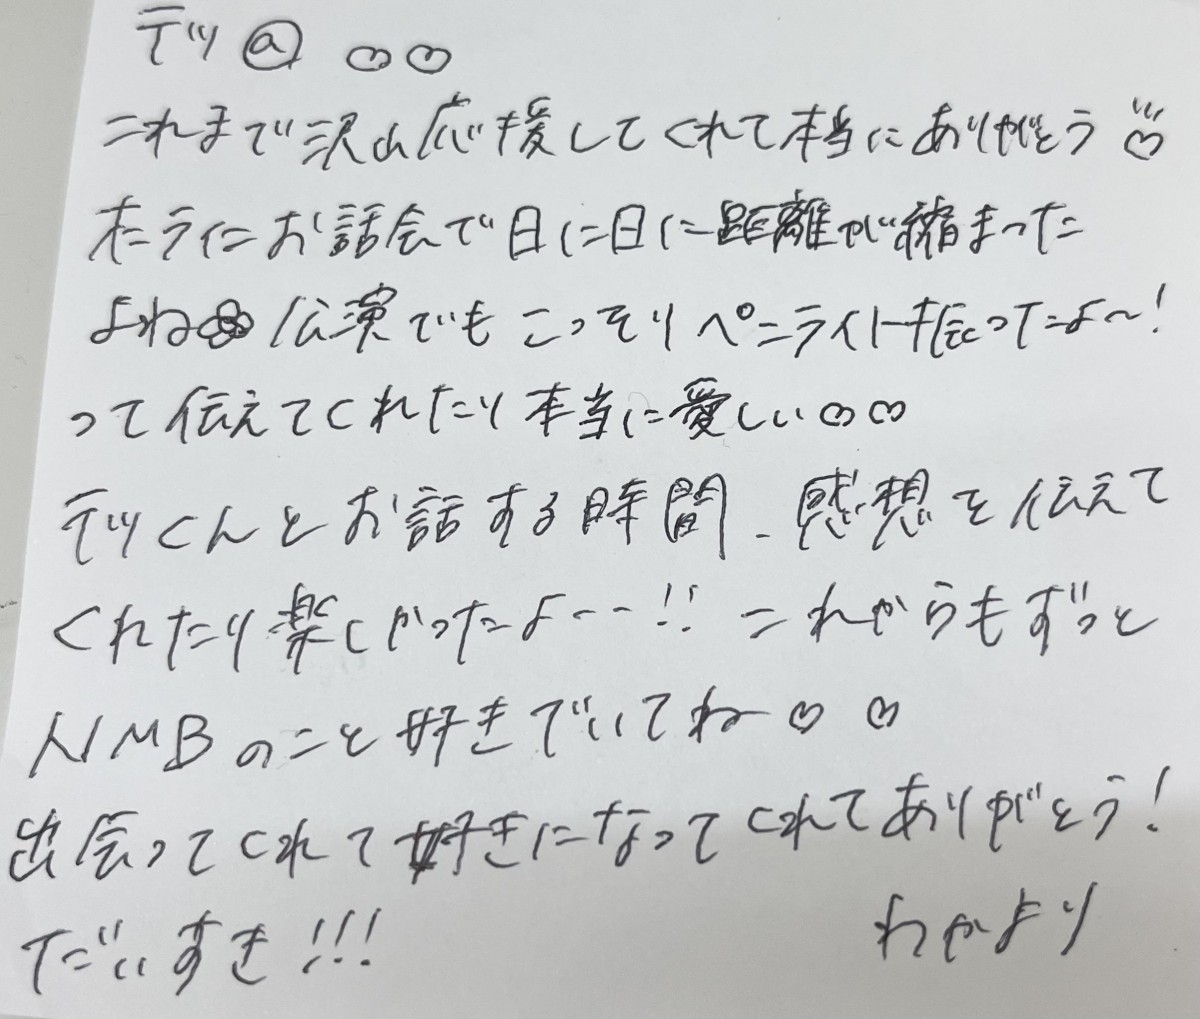 テツⓐ ♡♡
これまで沢山応援してくれて本当にありがとう♡
オンラインお話会で日に日に距離が縮まった
よね 公演でもこっそりペンライト振ったよ〜!
って伝えてくれたり本当に愛しい♡♡
テツくんとお話する時間、感想を伝えて
くれたり楽しかったよーー!! これからもずっと
NMBのこと好きでいてね♡♡
出会ってくれて好きになってくれてありがとう!
だいすき!!! わかより